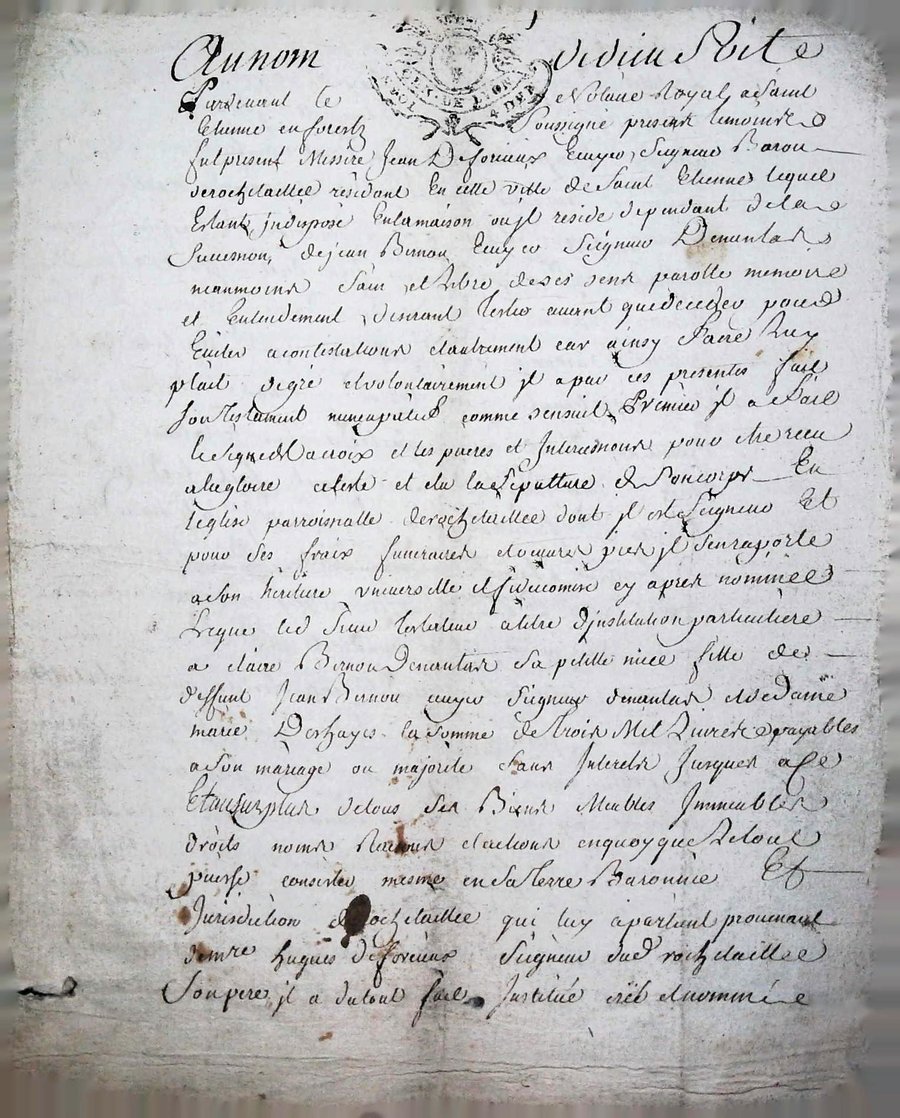 Au nom de dieu Soit
Pardevant le Notaire Royal a Saint
Etienne en forestz Soussigne present temoins
fut present Messire Jean De forieux Ecuyer Seigneur Baron
de rochetaillee residant En cette ville de Saint Etienne lequel
Estant indisposé En la maison ou jl reside dependant de la
Succession de jean Bernou Ecuyer Seigneur De nantas
neanmoins Sain et Libre de ses sens parolle memoire
et Entendement desirant tester avant que deceder pour
Eviter a contestations et autrement car ainsy faire luy
plait de gré et volontairement jl a par ces presentes fait
Son testament nuncupatif comme sensuit Premier jl a fait
le Signe de La croix et les prieres et Intercessions pour etre receu
a la gloire celeste et elu la Sepulture de Son corps En
leglise parroissialle de rochetaillee dont jl est Seigneur Et
pour Ses frais funeraires et oeuvres pies jl Sen raporte
a Son heritiere universelle et fideicomise cy apres nommée
Legue led Sieur testateur a titre Djnstitution particuliere
a claire Bernou De nantas Sa petitte niece fille de
deffunt Jean Bernou ecuyer Seigneur de nantas et de dame
marie Deshayes la Somme de trois Mil Livres payables
a Son mariage ou majorité Sans Interets Jusques a ce
Et au Surplus de tous Ses Biens Meubles Immeubles
droits noms Raisons et actions en quoy que Le tout
puisse consister mesme en Sa terre Baronnie Et
Jurisdiction de rochetaillee qui luy apartient provenant
de mre hugues De forieux Seigneur dud rochetaillee
Son pere jl a du tout fait Jnstitué créé et nommé